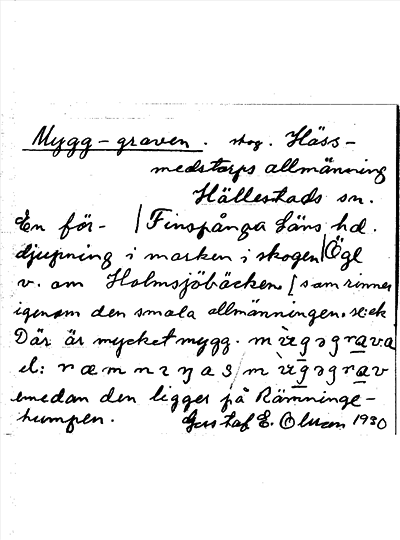 Mygg-graven. skog. Häss-
medstorps allmänning
Hällestads sn.
En för- | Finspånga läns hd.
djupning i marken i skogen | Ögl
v. om Holmsjöbäcken. [som rinner
igenom den smala allmänningen.
Där är mycket mygg.
el:
emedan den ligger på Rämninge-
humpen. Gustaf E. Olsson 1930